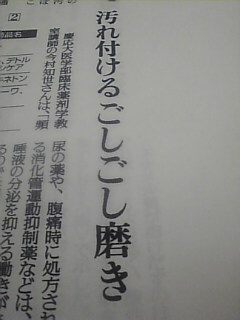 汚れ付けるごしごし磨き
慶応大医学部臨床薬剤学教
室講師の今村知世さんは、「頻
尿の薬や、腹痛時に処方され
る消化管運動抑制薬などは、
唾液の分泌を抑える働きが
2
品名
デトル
シケア
ネトン
ーワ、